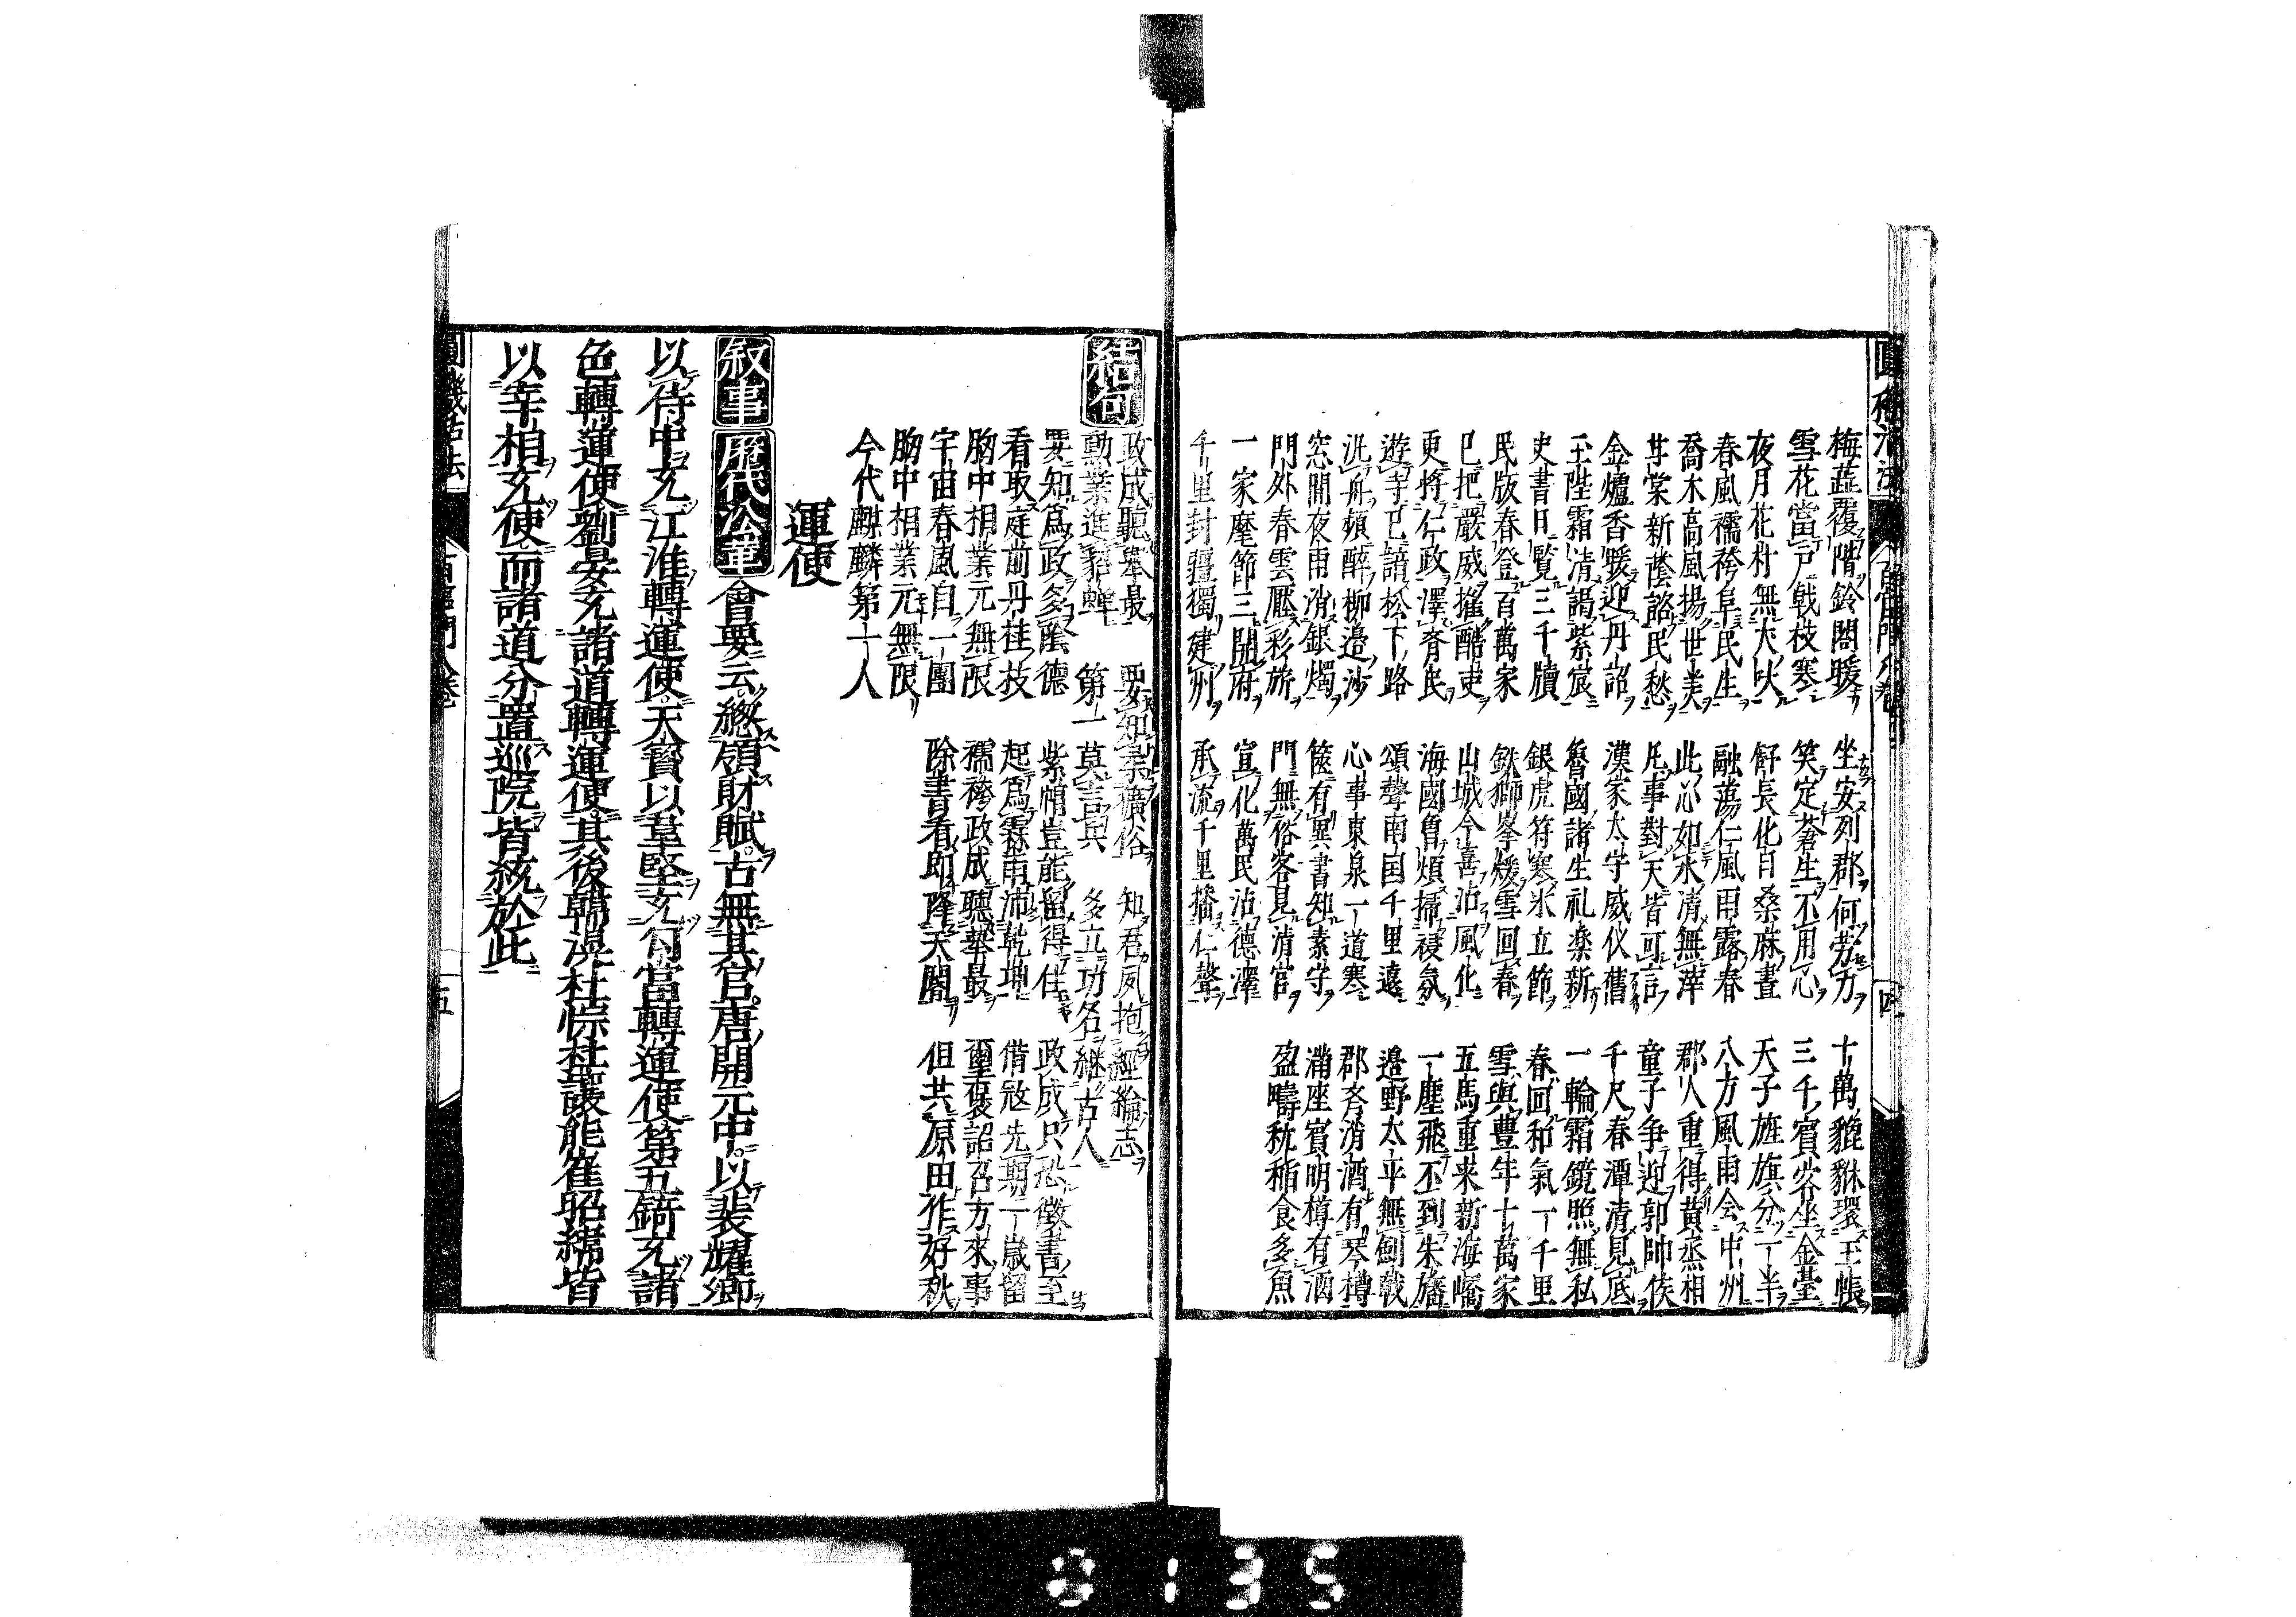 梅蕋覆階鈴閤暖 坐安列郡何劳力 十萬貔貅環玉帳
雪花當戸戟枝寒 笑定蒼生不用心 三千賓客坐金䑓
夜月花村無犬吠 舒長化日桑麻晝 天子旌旗分一半
春風襦袴阜民生 融蕩仁風雨露春 八方風雨会中州
喬木高風揚世美 此心如水清無滓 郡人重得黄丞相
甘棠新蔭詺民愁 凢事對天皆可言 童子争迎郭帥侯
金爐香暖迎丹詔 漢家太守威仪舊 千尺春潭清見底
玉陛霜清謁紫宸 魯國諸生礼楽新 一輪霜鏡照無私
史書日覽三千牘 銀虎符寒氷立節 春回和氣一千里
民版春登百萬家 鉄獅峯煖雪回春 雪與豊年十萬家
已把嚴威摧酷吏 山城今喜沾風化 五馬重来新海嶠
更将仁政澤斉民 海國曾煩掃祲氛 一塵飛不到朱旛
遊寺已諳松下路 頌聲南国千里遠 邉野太平無劍戟
泛舟頻醉柳邉沙 心事東泉一道寒 郡斉消酒有琴樽
窓開夜雨消銀燭 篋有異書知素守 满座賓明樽有酒
門外春雲壓彩旂 門無俗客見清官 盈疇秔稲食多魚
一家麾節三開府 宣化萬民沾德澤
千里封疆獨建州 承流千里播仁聲
結句
政成聽舉最 要知柔獷俗 知君夙抱經綸志
勳業進貂蟬 第一莫言兵 多立功名継古人
要知爲政多隂德 紫帽豈能留得住 政成只恐徴書至
看取庭前丹桂枝 起爲霖雨沛乾坤 借㓂先期一歳留
胸中相業元無限 襦袴政成聽舉最 璽褒詔召方來事
宇宙春風自一團 除書看即降天閽 但共原田作好秋
胸中相業元無限
今代麒麟第一人
運使
叙事 歴代㳂革 會要云總領財賦古無其官唐開元中以裴耀卿
以侍中充江淮轉運使天寳以韋堅充勾當轉運使第五錡充諸
色轉運使劉晏充諸道轉運使其後韓滉杜悰杜讓能崔昭緯皆
以宰相充使而諸道分置巡院皆統於此
圓機活法
五
0135